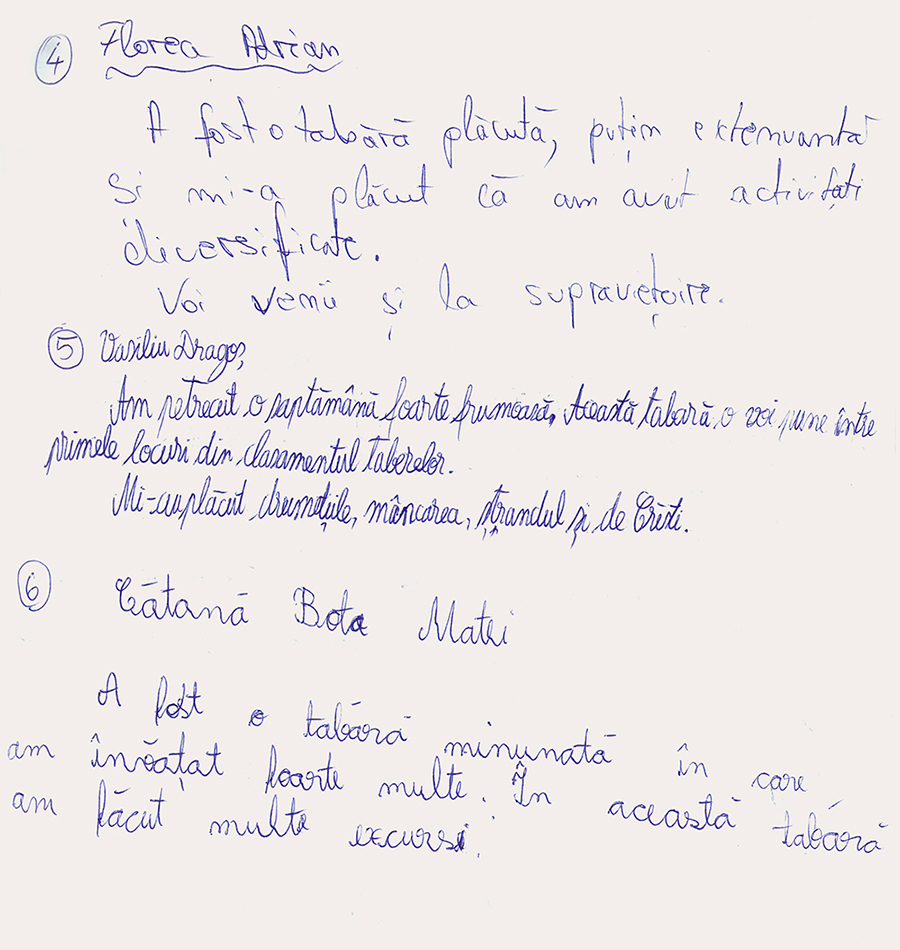 ④ Florea Adrian
A fost o tabără plăcută, puțin extenuantă
Și mi-a plăcut că am avut activități
diversificate.
Voi venii și la supraviețuire.
⑤ Vasiliu Dragoș,
Am petrecut o saptămână foarte frumoasă. Această tabară o voi pune între
primele locuri din clasamentul taberelor.
Mi-au plăcut drumețiile, mâncarea, ștrandul și de Cristi.
⑥ Cătană Bota Matei
A fost o tabără minunată în care
am învățat foarte multe. În această tabără
am făcut multe excursi.